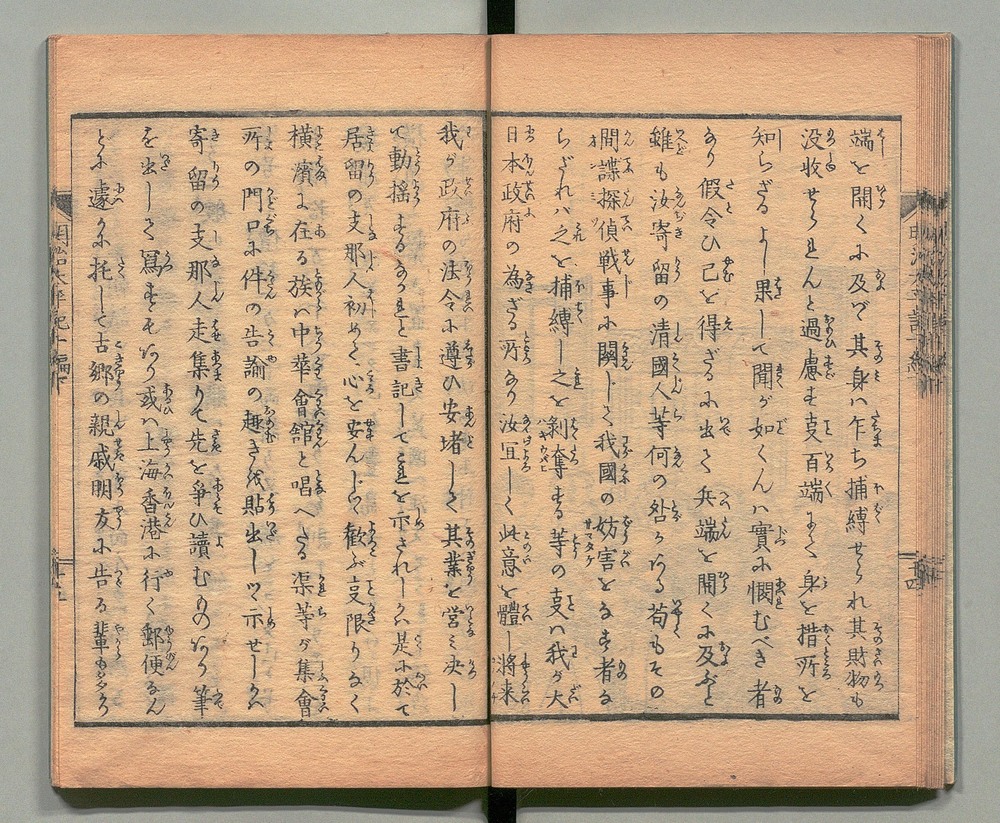 端を開くに及バヾ其身ハ乍ち捕縛せられ其財物も
没收せられんと過慮す支百端にて身を措所を
知らざるよし果して聞が如くんバ實に憫むべき者
あり假令ひ已を得ざるに出て兵端を開くに及ぶと
雖も汝寄留の清國人等何の咎かある苟もその
間諜探偵戦事に關して我國の妨害をなす者な
らざれバ之を捕縛し之を剝奪する等の支ハ我が大
日本政府の為ざる所なり汝宜しく此意を體し将来
我が政府の法令に遵ひ安堵して其業を営ミ决し
て動揺するなれと書記して之を示されしかバ是に於て
居留の支那人初めて心を安んじて歡ぶ支限りなく
横濱に在る族ハ中華會舘と唱へたる渠等が集會
所の門口に件の告諭の趣き紙貼出しつヽ示せしかバ
寄留の支那人走集りて先を爭ひ讀むものあり筆
を出して寫すもあり或ハ上海香港に行く郵便なん
どに遽かに托して古郷の親戚朋友に告る輩も多かり
明治太平記十編下